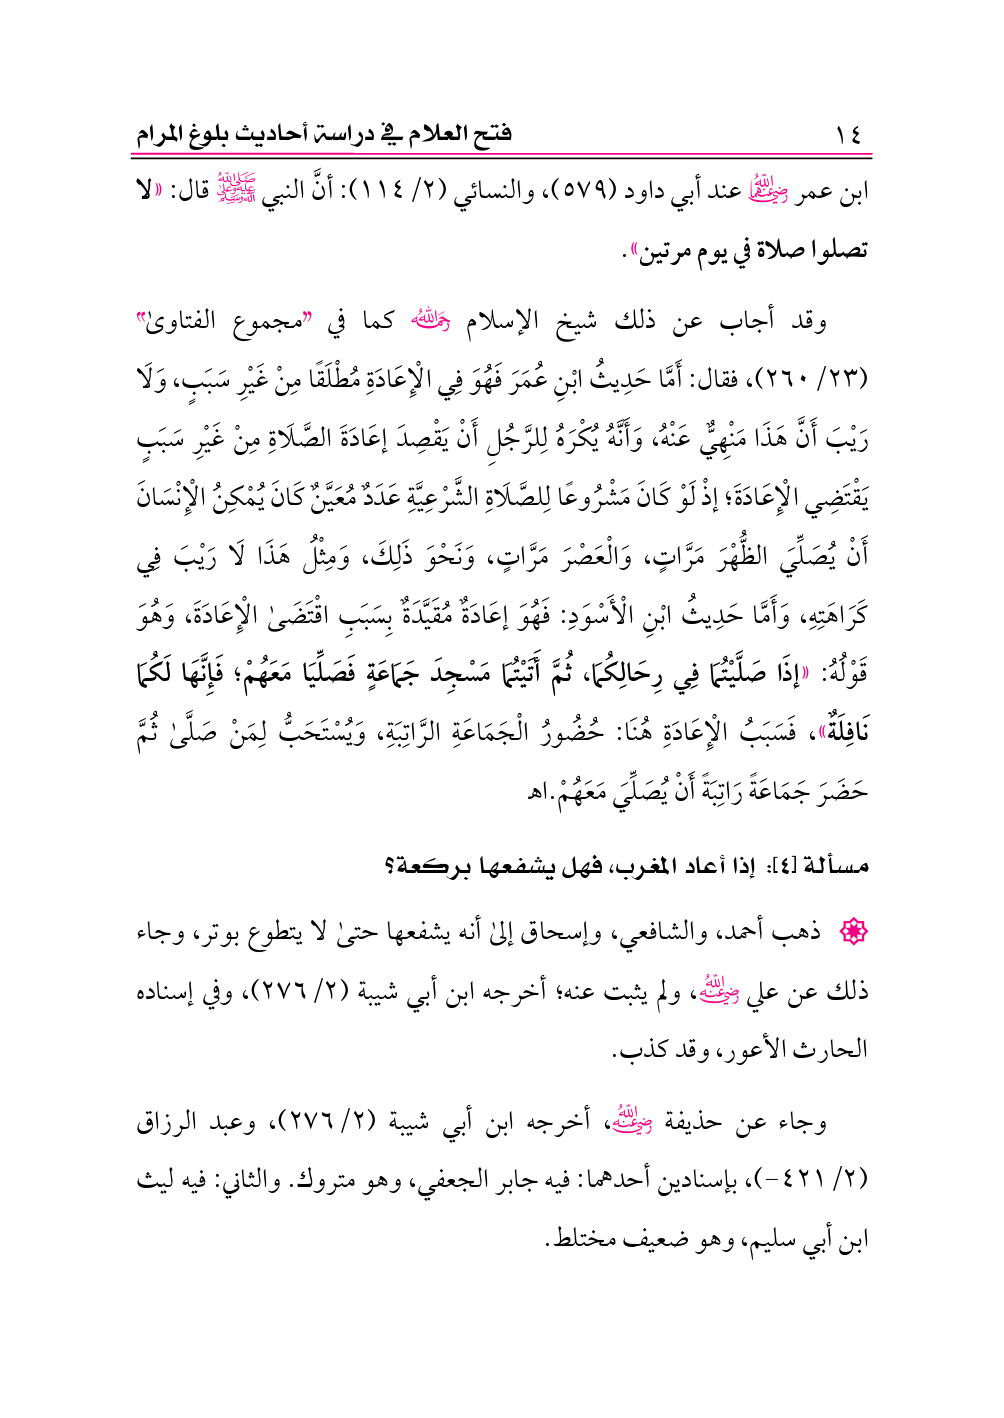 ١٤ فتح العلام في دراسة أحاديث بلوغ المرام
ابن عمر رضي الله عنهما عند أبي داود (٥٧٩)، والنسائي (٢/ ١١٤): أنَّ النبي ﷺ قال: «لا
تصلوا صلاة في يوم مرتين».
وقد أجاب عن ذلك شيخ الإسلام رحمه الله كما في "مجموع الفتاوىٰ"
(٢٣/ ٢٦٠)، فقال: أَمَّا حَدِيثُ ابْنِ عُمَرَ فَهُوَ فِي الْإِعَادَةِ مُطْلَقًا مِنْ غَيْرِ سَبَبٍ، وَلَا
رَيْبَ أَنَّ هَذَا مَنْهِيٌّ عَنْهُ، وَأَنَّهُ يُكْرَهُ لِلرَّجُلِ أَنْ يَقْصِدَ إعَادَةَ الصَّلَاةِ مِنْ غَيْرِ سَبَبٍ
يَقْتَضِي الْإِعَادَةَ؛ إذْ لَوْ كَانَ مَشْرُوعًا لِلصَّلَاةِ الشَّرْعِيَّةِ عَدَدٌ مُعَيَّنٌ كَانَ يُمْكِنُ الْإِنْسَانَ
أَنْ يُصَلِّيَ الظُّهْرَ مَرَّاتٍ، وَالْعَصْرَ مَرَّاتٍ، وَنَحْوَ ذَلِكَ، وَمِثْلُ هَذَا لَا رَيْبَ فِي
كَرَاهَتِهِ، وَأَمَّا حَدِيثُ ابْنِ الْأَسْوَدِ: فَهُوَ إعَادَةٌ مُقَيَّدَةٌ بِسَبَبِ اقْتَضَىٰ الْإِعَادَةَ، وَهُوَ
قَوْلُهُ: «إذَا صَلَّيْتُمَا فِي رِحَالِكُمَا، ثُمَّ أَتَيْتُمَا مَسْجِدَ جَمَاعَةٍ فَصَلِّيَا مَعَهُمْ؛ فَإِنَّهَا لَكُمَا
نَافِلَةٌ»، فَسَبَبُ الْإِعَادَةِ هُنَا: حُضُورُ الْجَمَاعَةِ الرَّاتِبَةِ، وَيُسْتَحَبُّ لِمَنْ صَلَّىٰ ثُمَّ
حَضَرَ جَمَاعَةً رَاتِبَةً أَنْ يُصَلِّيَ مَعَهُمْ.اهـ
مسألة [٤]: إذا أعاد المغرب، فهل يشفعها بركعة؟
ذهب أحمد، والشافعي، وإسحاق إلىٰ أنه يشفعها حتىٰ لا يتطوع بوتر، وجاء
ذلك عن علي رضي الله عنه، ولم يثبت عنه؛ أخرجه ابن أبي شيبة (٢/ ٢٧٦)، وفي إسناده
الحارث الأعور، وقد كذب.
وجاء عن حذيفة رضي الله عنه، أخرجه ابن أبي شيبة (٢/ ٢٧٦)، وعبد الرزاق
(٢/ ٤٢١-)، بإسنادين أحدهما: فيه جابر الجعفي، وهو متروك. والثاني: فيه ليث
ابن أبي سليم، وهو ضعيف مختلط.